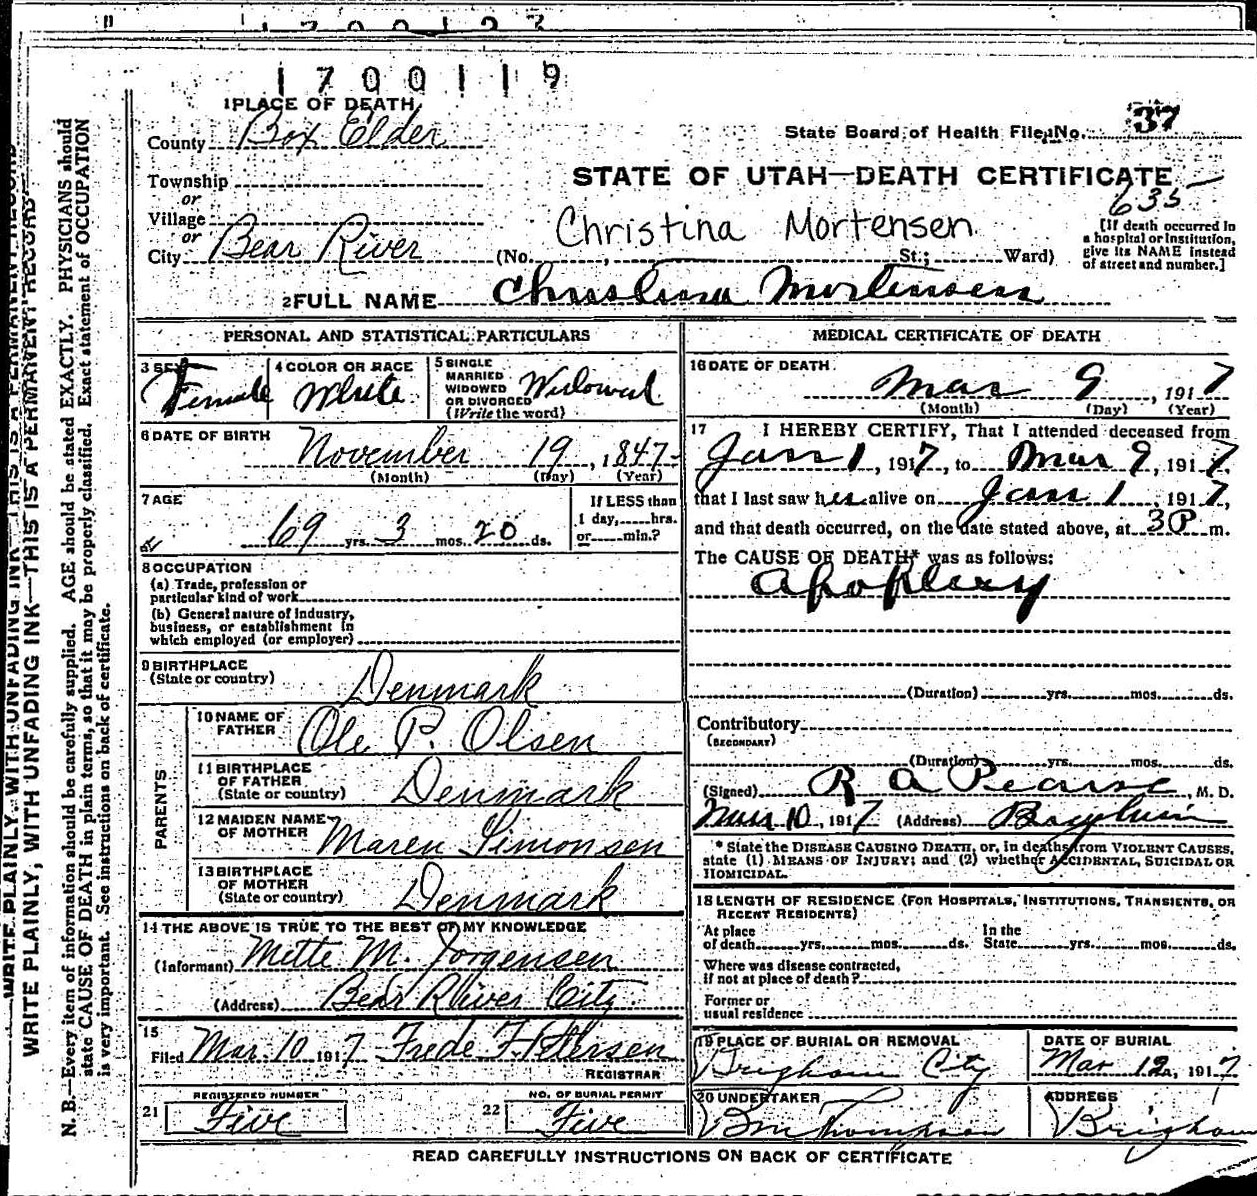 1700119
1 PLACE OF DEATH
County Box Elder
State Board of Health File No. 37
Township
or
Village
or
City Bear River
STATE OF UTAH—DEATH CERTIFICATE
635
Christina Mortensen
(No. , St.; Ward)
[If death occurred in
a hospital or institution,
give its NAME instead
of street and number.]
2 FULL NAME Christina Mortensen
PERSONAL AND STATISTICAL PARTICULARS
3 SEX Female
4 COLOR OR RACE White
5 SINGLE
MARRIED
WIDOWED
OR DIVORCED
(Write the word) Widowed
6 DATE OF BIRTH
November 19, 1847
(Month) (Day) (Year)
7 AGE
69 yrs. 3 mos. 20 ds.
If LESS than
1 day, hrs.
or min.?
8 OCCUPATION
(a) Trade, profession or
particular kind of work
(b) General nature of industry,
business, or establishment in
which employed (or employer)
9 BIRTHPLACE
(State or country) Denmark
PARENTS
10 NAME OF
FATHER Ole P. Olsen
11 BIRTHPLACE
OF FATHER
(State or country) Denmark
12 MAIDEN NAME
OF MOTHER Maren Simonsen
13 BIRTHPLACE
OF MOTHER
(State or country) Denmark
14 THE ABOVE IS TRUE TO THE BEST OF MY KNOWLEDGE
(Informant) Mette M. Jorgensen
(Address) Bear River City
15
Filed Mar. 10 1917 Frede F.
REGISTRAR
REGISTERED NUMBER
21 Five
NO. OF BURIAL PERMIT
22 Five
MEDICAL CERTIFICATE OF DEATH
16 DATE OF DEATH
Mar 9, 1917
(Month) (Day) (Year)
17 I HEREBY CERTIFY, That I attended deceased from
Jan 1, 1917, to Mar 9, 1917,
that I last saw her alive on Jan 1, 1917,
and that death occurred, on the date stated above, at 3 P m.
The CAUSE OF DEATH* was as follows:
Apoplexy
(Duration) yrs. mos. ds.
Contributory
(SECONDARY)
(Duration) yrs. mos. ds.
(Signed) R A Pearse, M. D.
Mar 10, 1917 (Address) Brigham
* State the DISEASE CAUSING DEATH, or, in deaths from VIOLENT CAUSES,
state (1) MEANS OF INJURY; and (2) whether ACCIDENTAL, SUICIDAL OR
HOMICIDAL.
18 LENGTH OF RESIDENCE (FOR HOSPITALS, INSTITUTIONS, TRANSIENTS, OR
RECENT RESIDENTS)
At place
of death yrs. mos. ds.
In the
State yrs. mos. ds.
Where was disease contracted,
if not at place of death?
Former or
usual residence
19 PLACE OF BURIAL OR REMOVAL
Brigham City
DATE OF BURIAL
Mar 12, 1917
20 UNDERTAKER
Thompson
ADDRESS
Brigham
READ CAREFULLY INSTRUCTIONS ON BACK OF CERTIFICATE
WRITE PLAINLY, WITH UNFADING INK—THIS IS A PERMANENT RECORD
N. B.—Every item of information should be carefully supplied. AGE should be stated EXACTLY. PHYSICIANS should
state CAUSE OF DEATH in plain terms, so that it may be properly classified. Exact statement of OCCUPATION
is very important. See instructions on back of certificate.